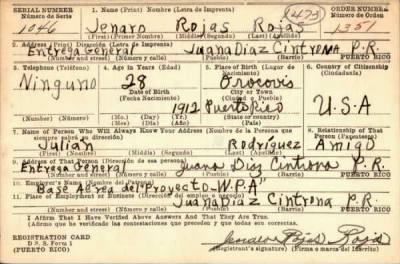 SERIAL NUMBER 1. Name (Print) Nombre (Letra de Imprenta) ORDER NUMBER
Número de Serie 473 Número de Orden
1046 Jenaro Rojas Rojas 1351
(First) (Primer Nombre) (Middle) (Segundo Nombre) (Last) (Apellido)
2. Address (Print) Dirección (Letra de Imprenta)
Entrega General Juana Diaz Cintrona P.R.
Number and street) (Número y calle) (Town) (Pueblo) (Barrio) (Barrio) PUERTO RICO
3. Telephone (Teléfono) 4. Age in Years (Edad) 5. Place of Birth (Lugar de Nacimiento) 6. Country of Citizenship (Ciudadanía)
Ninguno 28 Orocovis
Date of Birth City or Town
(Fecha Nacimiento) (Ciudad o Pueblo)
1912 Puerto Rico U.S.A
(Number) (Número) (Mo.) (Día) (Yr.) (Año) (State or county) (Estado o país)
7. Name of Person Who Will Always Know Your Address (Nombre de la Persona que siempre sabrá su dirección) 8. Relationship of That Person (Parentesco)
Julian Rodriguez Amigo
9. Address of That Person (Dirección de esa persona)
Entrega General Juana Diz Cintrona P.R.
Number and street) (Número y calle) (Town) (Pueblo) (Barrio) (Barrio) PUERTO RICO
10. Employer's Name (Nombre del Patrono)
Base Aerea del Proyecto-W.P.A
11. Place of Employment or Business (Dirección del empleo)
Juana Diaz Cintrona P.R.
Number and street) (Número y calle) (Town) (Pueblo) (Barrio) (Barrio) PUERTO RICO
I Affirm That I Have Verified Above Answers And That They Are True.
(Afirmo que he verificado las contestaciones que preceden y que todas son ciertas.)
REGISTRATION CARD
D. S. S. Form 1
(PUERTO RICO)
Rojas Rojas
(Registrant's signature) (Firma o marca del Inscrito)